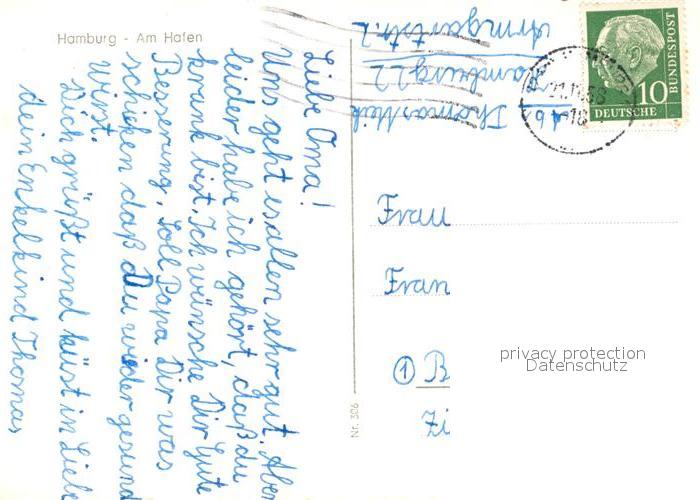 Hamburg - Am Hafen
Liebe Oma!
Uns geht es allen sehr gut. Aber
leider habe ich gehört, daß du
krank bist. Ich wünsche Dir Gute
Besserung. Soll Papa Dir was
schicken daß Du wieder gesund
wirst.
Dich grüßt und küst in Liebe
dein Enkelkind Thomas
Nr. 306
Thomas
Hamburg 22
Armgartstr. 2
DEUTSCHE
BUNDESPOST
10
Frau
Fran
1 B
Zi
privacy protection
Datenschutz